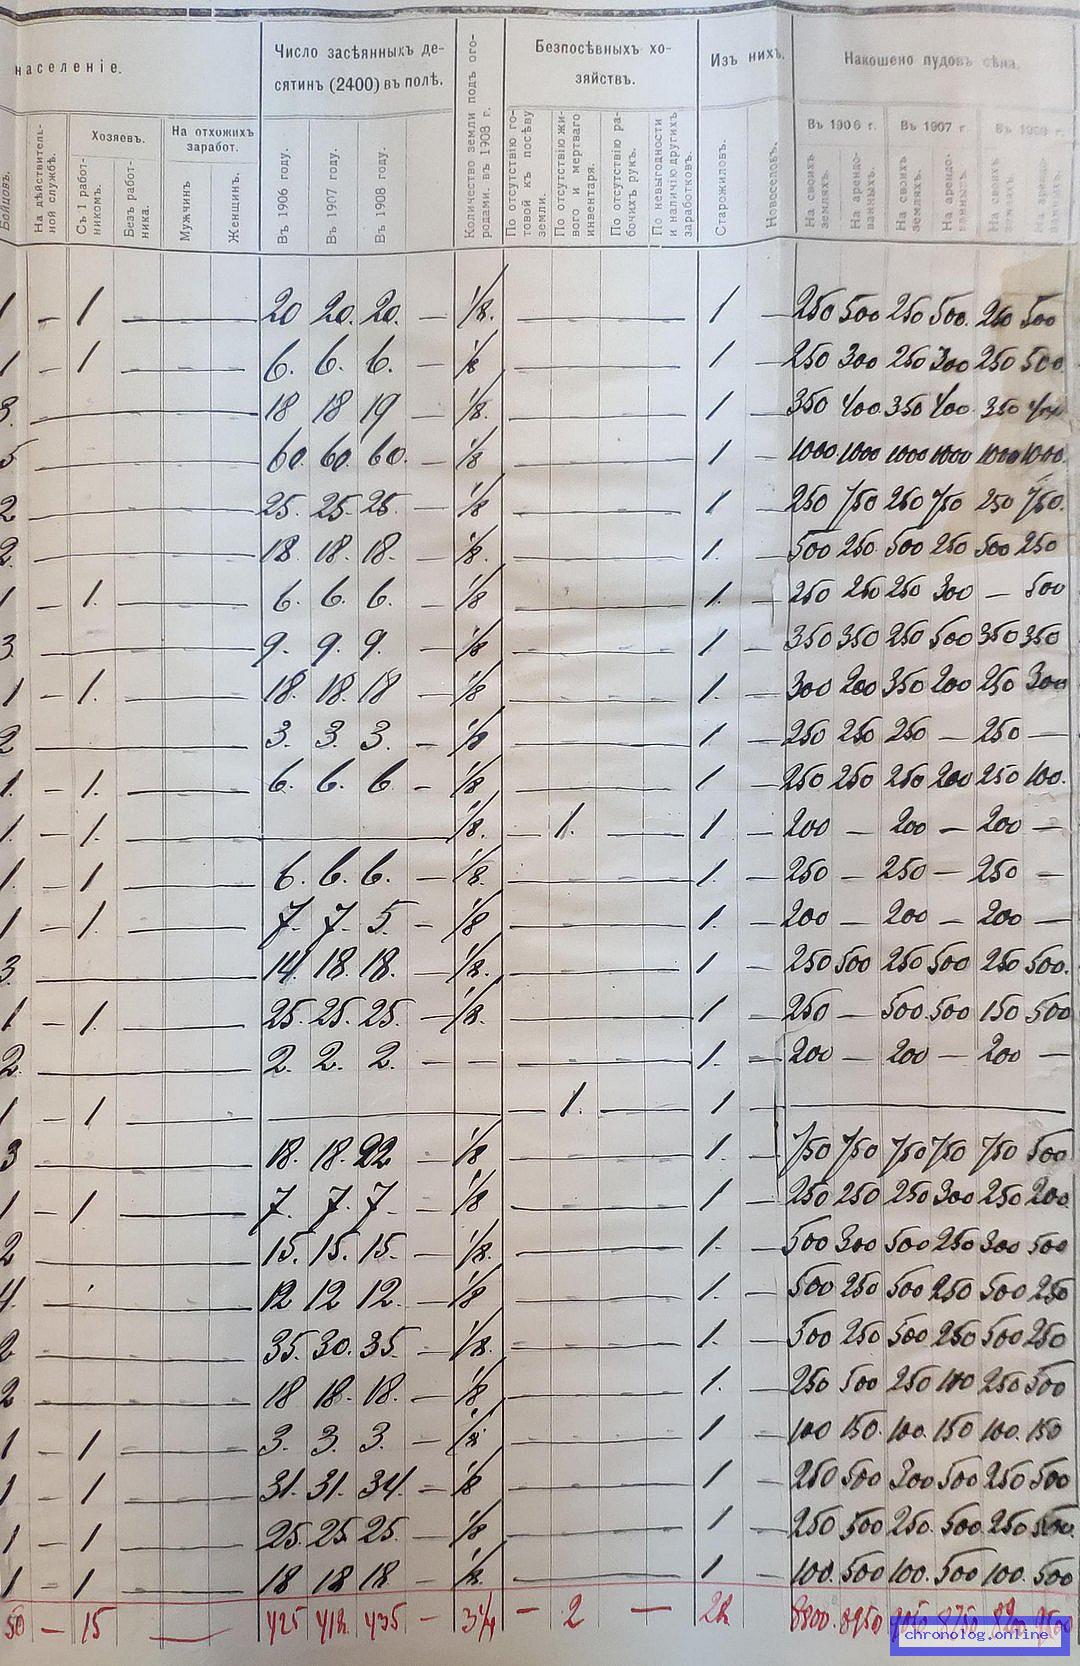 населеніе.
Число засѣянныхъ де-
сятинъ (2400) въ полѣ.
Количество земли подъ ого-
родами. въ 1908 г.
Безпосѣвныхъ хо-
зяйствъ.
Изъ нихъ.
Накошено пудовъ сѣна.
Бойцовъ.
На дѣйствитель-
ной службѣ.
Хозяевъ.
Съ 1 работ-
никомъ.
Безъ работ-
ника.
На отхожихъ
заработ.
Мужчинъ
Женщинъ.
Въ 1906 году.
Въ 1907 году.
Въ 1908 году.
По отсутствію го-
товой къ посѣву
земли.
По отсутствію жи-
вого и мертваго
инвентаря.
По отсутствію ра-
бочихъ рукъ.
По невыгодности
и наличію другихъ
заработковъ.
Старожиловъ.
Новоселовъ.
Въ 1906 г.
Въ 1907 г.
Въ 1908 г.
На своихъ
земляхъ.
На арендо-
ванныхъ.
На своихъ
земляхъ.
На арендо-
ванныхъ.
На своихъ
земляхъ.
На арендо-
ванныхъ.
1 – 1 — 20 20. 20. – 1/8. — 1 – 250 500 250 500. 250 500
1 – 1 — 6. 6. 6. – 1/8 — 1 – 250 300 250 300 250 500.
3. — 18 18 19 – 1/8. — 1 – 350 400 350 400 350 400
5 — 60. 60. 60. – 1/8 — 1 – 1000 1000 1000 1000 1000 1000.
2 — 25. 25. 25. – 1/8 — 1 – 250 750 250 750 250 750.
2. — 18. 18. 18. – 1/8. — 1. – 500 250 500 250 500 250
1 – 1. — 6. 6. 6. – 1/8 — 1. – 250 250 250 300 – 500
3. — 9. 9. 9. – 1/8 — 1 – 350 350 250 500 350 350
1 – 1. — 18. 18. 18 – 1/8 — 1 – 300 200 350 200 250 300
2 — 3. 3. 3. – 1/8 — 1. – 250 250 250 – 250 –
1. – 1. — 6. 6. 6 – 1/8 — 1 – 250 250 250 200 250 100.
1. – 1. — 1/8. – 1. — 1 – 200 – 200 – 200 –
1. – 1 — 6. 6. 6. – 1/8. — 1. – 250 – 250 – 250 –
1 – 1. — 7. 7. 5. – 1/8 — 1. – 200 – 200 – 200 –
3. — 14 18. 18. – 1/8. — 1 – 250 500 250 500 250 500.
1 – 1. — 25. 25. 25. – 1/8. — 1 – 250 – 500. 500 150 500
2. — 2. 2. 2. – – — 1. – 200 – 200 – 200 –
1 – 1 — – 1. — 1 —
3 — 18. 18. 22 – 1/8 — 1. – 750 750 750 750 750 500
1 – 1 — 7. 7. 7. – 1/8 — 1 – 250 250 250 300 250 200
2 — 15. 15. 15. – 1/8. — 1. – 500 300 500 250 300 500
4. — 12 12 12. – 1/8 — 1. – 500 250 500 250 500 250
2 — 35. 30. 35. – 1/8. — 1. – 500 250 500 250 500 250
2 — 18 18. 18. – 1/8 — 1. – 250 500 250 100 250 500
1 – 1 — 3. 3. 3. – 1/8 — 1 – 100 150. 100. 150 100. 150
1 – 1 — 31. 31. 34. – 1/8 — 1 – 250 500 200 500 250 500
1 – 1 — 25. 25. 25. – 1/8 — 1 – 250 500 250. 500. 250 500.
1 – 1 — 18 18 18 – 1/8. — 1 – 100. 500 100. 500 100. 500
50 – 15 — 425 418. 435 – 3 1/4 – 2 — 28 8800. 8950 8750
chronolog.online